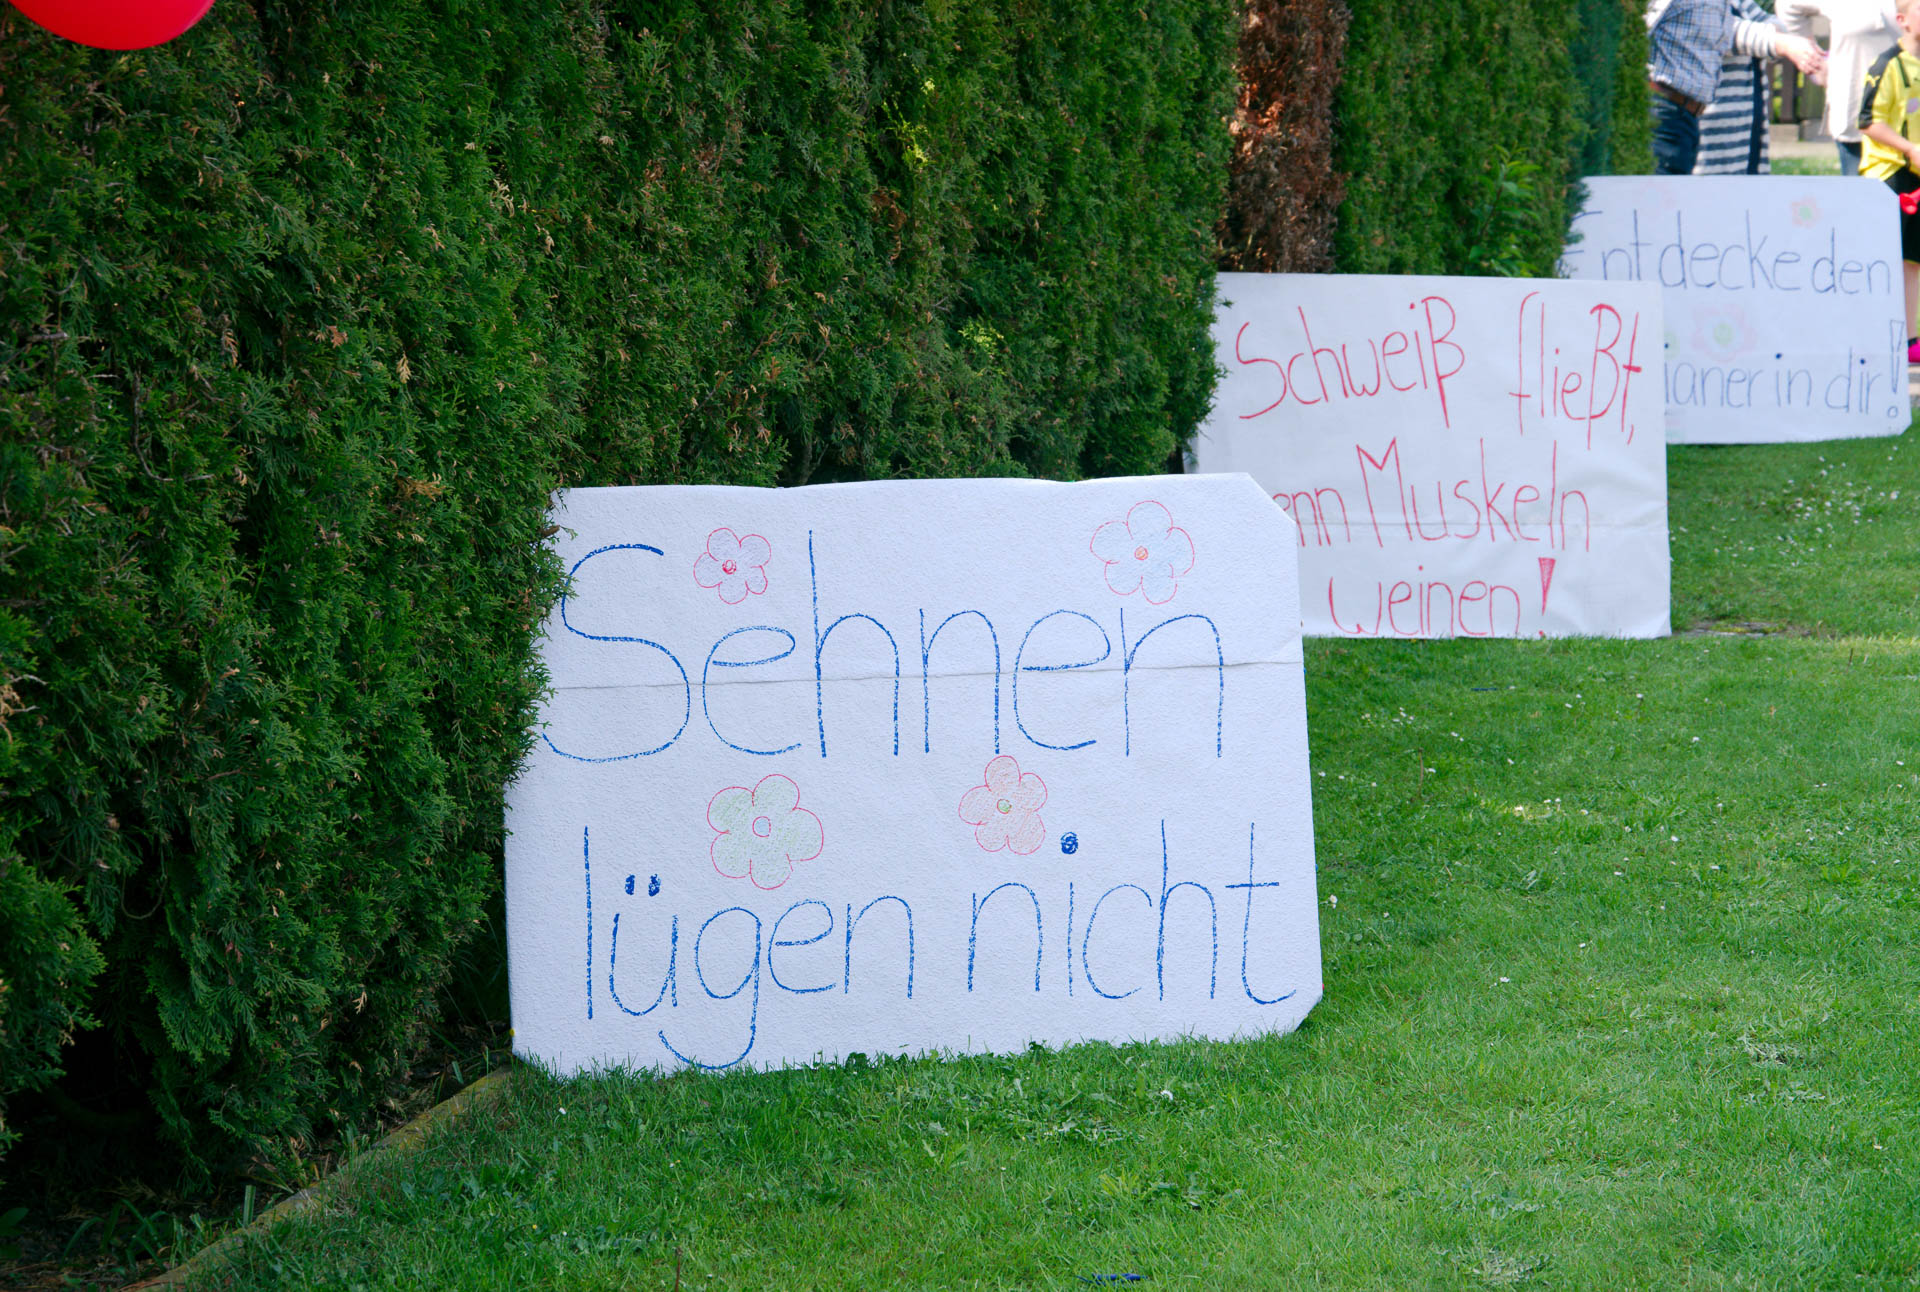 Sehnen
lügen nicht
Schweiß fließt,
Muskeln
weinen!
Entdecke den
in dir!